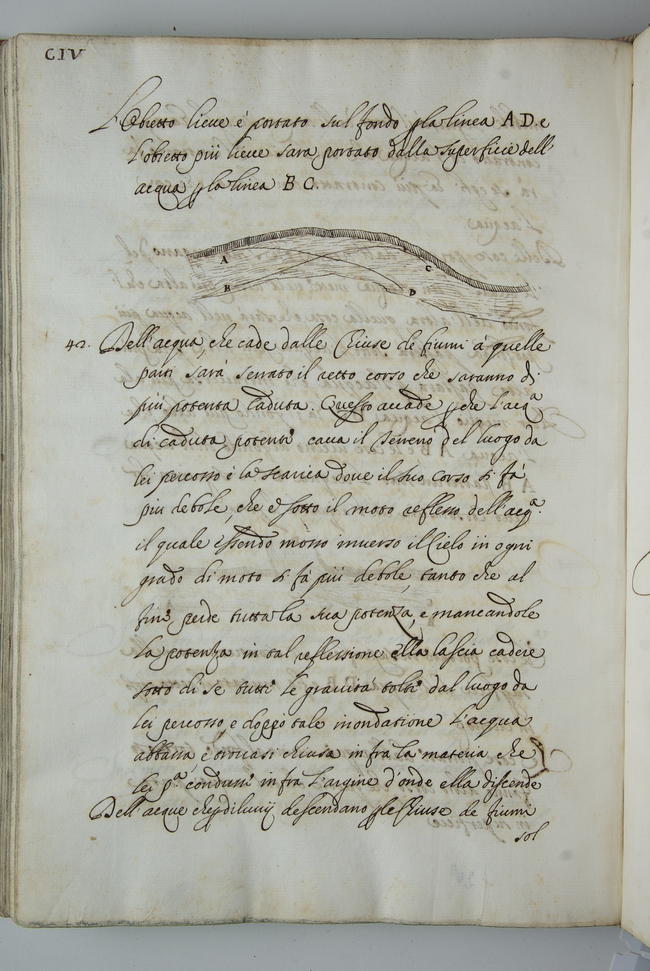 CIV
L'Obietto lieve è portato sul fondo p la linea A D. e
l'obietto più lieve sarà portato dalla superficie dell'
acqua p la linea B C.
A
B
C
D
42. Dell'acqua, che cade dalle Chiuse de fiumi à quelle
parti sarà serrato il retto corso che saranno di
più potente caduta. Questo accade p che l'acq.ª
di caduta potente cava il terreno del luogo da
lei percosso è la scarica dove il suo corso si fà
più debole, che è sotto il moto reflesso dell'acq.ª
il quale essendo mosso inverso il Cielo in ogni
grado di moto si fà più debole, tanto che al
fine perde tutta la sua potenza, e mancandole
la potenza in tal reflessione ella lascia cadere
sotto di se tutte le gravità tolte dal luogo da
lei percosso, e doppo tale inondatione l'acqua
abbassa è trovasi chiusa in fra la materia che
lei p.ª condusse in fra l'argine d'onde ella discende
Dell'acque che p diluvij descendano p le Chiuse de fiumi
sol